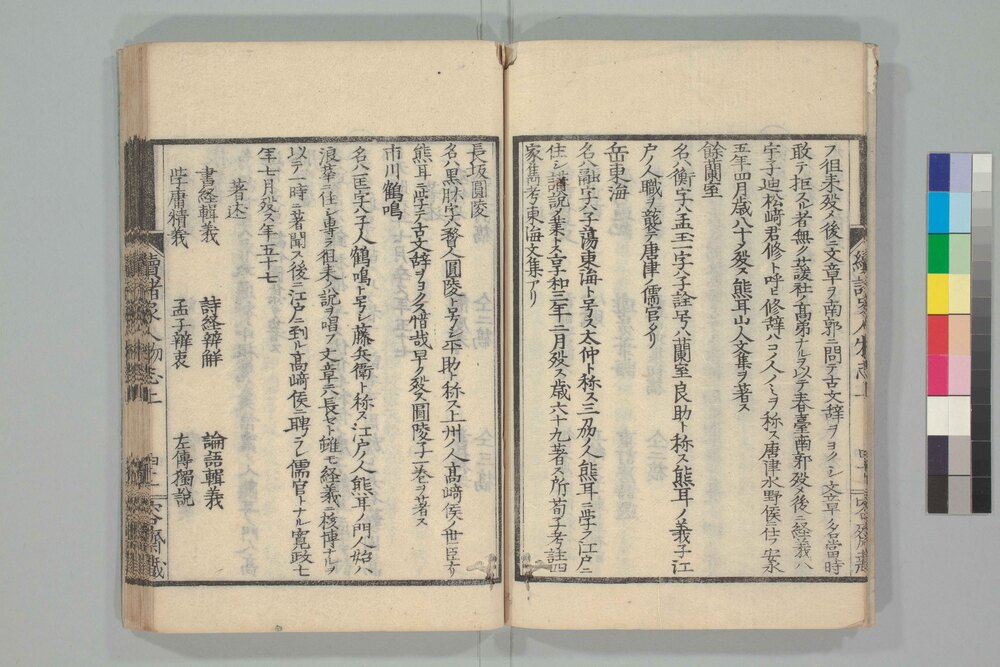 フ徂徠殁メ後ニ文章ヲ南郭ニ問テ古文辞ヲヨクシ文章ノ名當時
敢テ拒スル者無ク蘐社ノ髙弟ナルヲ以テ春臺南郭殁メ後ニ経義ハ
宇子迪松﨑君修ト呼ヒ修辞ハコノ人ノミヲ称ス唐津水野侯ニ仕フ安永
五年四月歳八十ノ殁ス熊耳山人文集ヲ著ス
餘蘭室
名ハ衡字ハ孟玉一字ハ子詮号ハ蘭室良助ト称ス熊耳ノ義子江
戸ノ人職ヲ襲テ唐津ノ儒官タリ
岳東海
名ハ融字ハ子蕩東海ト号ス太仲ト称ス三刕ノ人熊耳ニ学フ江戸ニ
住シ講説ヲ業トス享和三年二月殁ス歳六十九著ス所荀子考註四
家雋考東海文集アリ
長坂圓陵
名ハ黒肱字ハ人圓陵ト号シ平助ト称ス上州ノ人髙﨑侯ノ世臣ナリ
熊耳ニ学テ古文辞ヲヨクス惜哉早ク殁ス圓陵子二巻ヲ著ス
市川鶴鳴
名ハ匡字ハ子人鶴鳴ト号シ藤兵衛ト称ス江戸ノ人熊耳ノ門人始ハ
浪華ニ住シ専ラ徂徠ノ説ヲ唱フ文章ニ長セスト雖モ経義ニ核博ナルヲ
以テ一時ニ著聞ス後ニ江戸ニ到ル髙﨑侯ニ聘ラレ儒官トナル寛政七
年七月殁ス年五十七
著述
書経輯義 詩経辨解 論語輯義
学庸精義 孟子辨衷 左傳獨説
續諸家人物志上